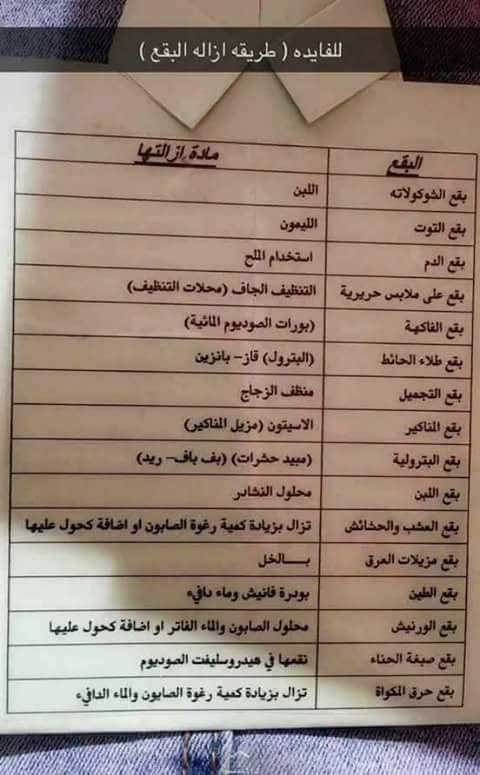 للفايده ( طريقه ازاله البقع )
البقع مادة إزالتها
بقع الشوكولاته اللبن
بقع التوت الليمون
بقع الدم استخدام الملح
بقع على ملابس حريرية التنظيف الجاف (محلات التنظيف)
بقع الفاكهة (بورات الصوديوم المائية)
بقع طلاء الحائط (البترول) قاز- بانزين
بقع التجميل منظف الزجاج
بقع المناكير الاسيتون (مزيل المناكير)
بقع البترولية (مبيد حشرات) (بف باف- ريد)
بقع اللبن محلول النشادر
بقع العشب والحشائش تزال بزيادة كمية رغوة الصابون او اضافة كحول عليها
بقع مزيلات العرق بـــالخل
بقع الطين بودرة فانيش وماء دافيء
بقع الورنيش محلول الصابون والماء الفاتر او اضافة كحول عليها
بقع صبغة الحناء نقعها في هيدروسليفت الصوديوم
بقع حرق المكواة تزال بزيادة كمية رغوة الصابون والماء الدافيء